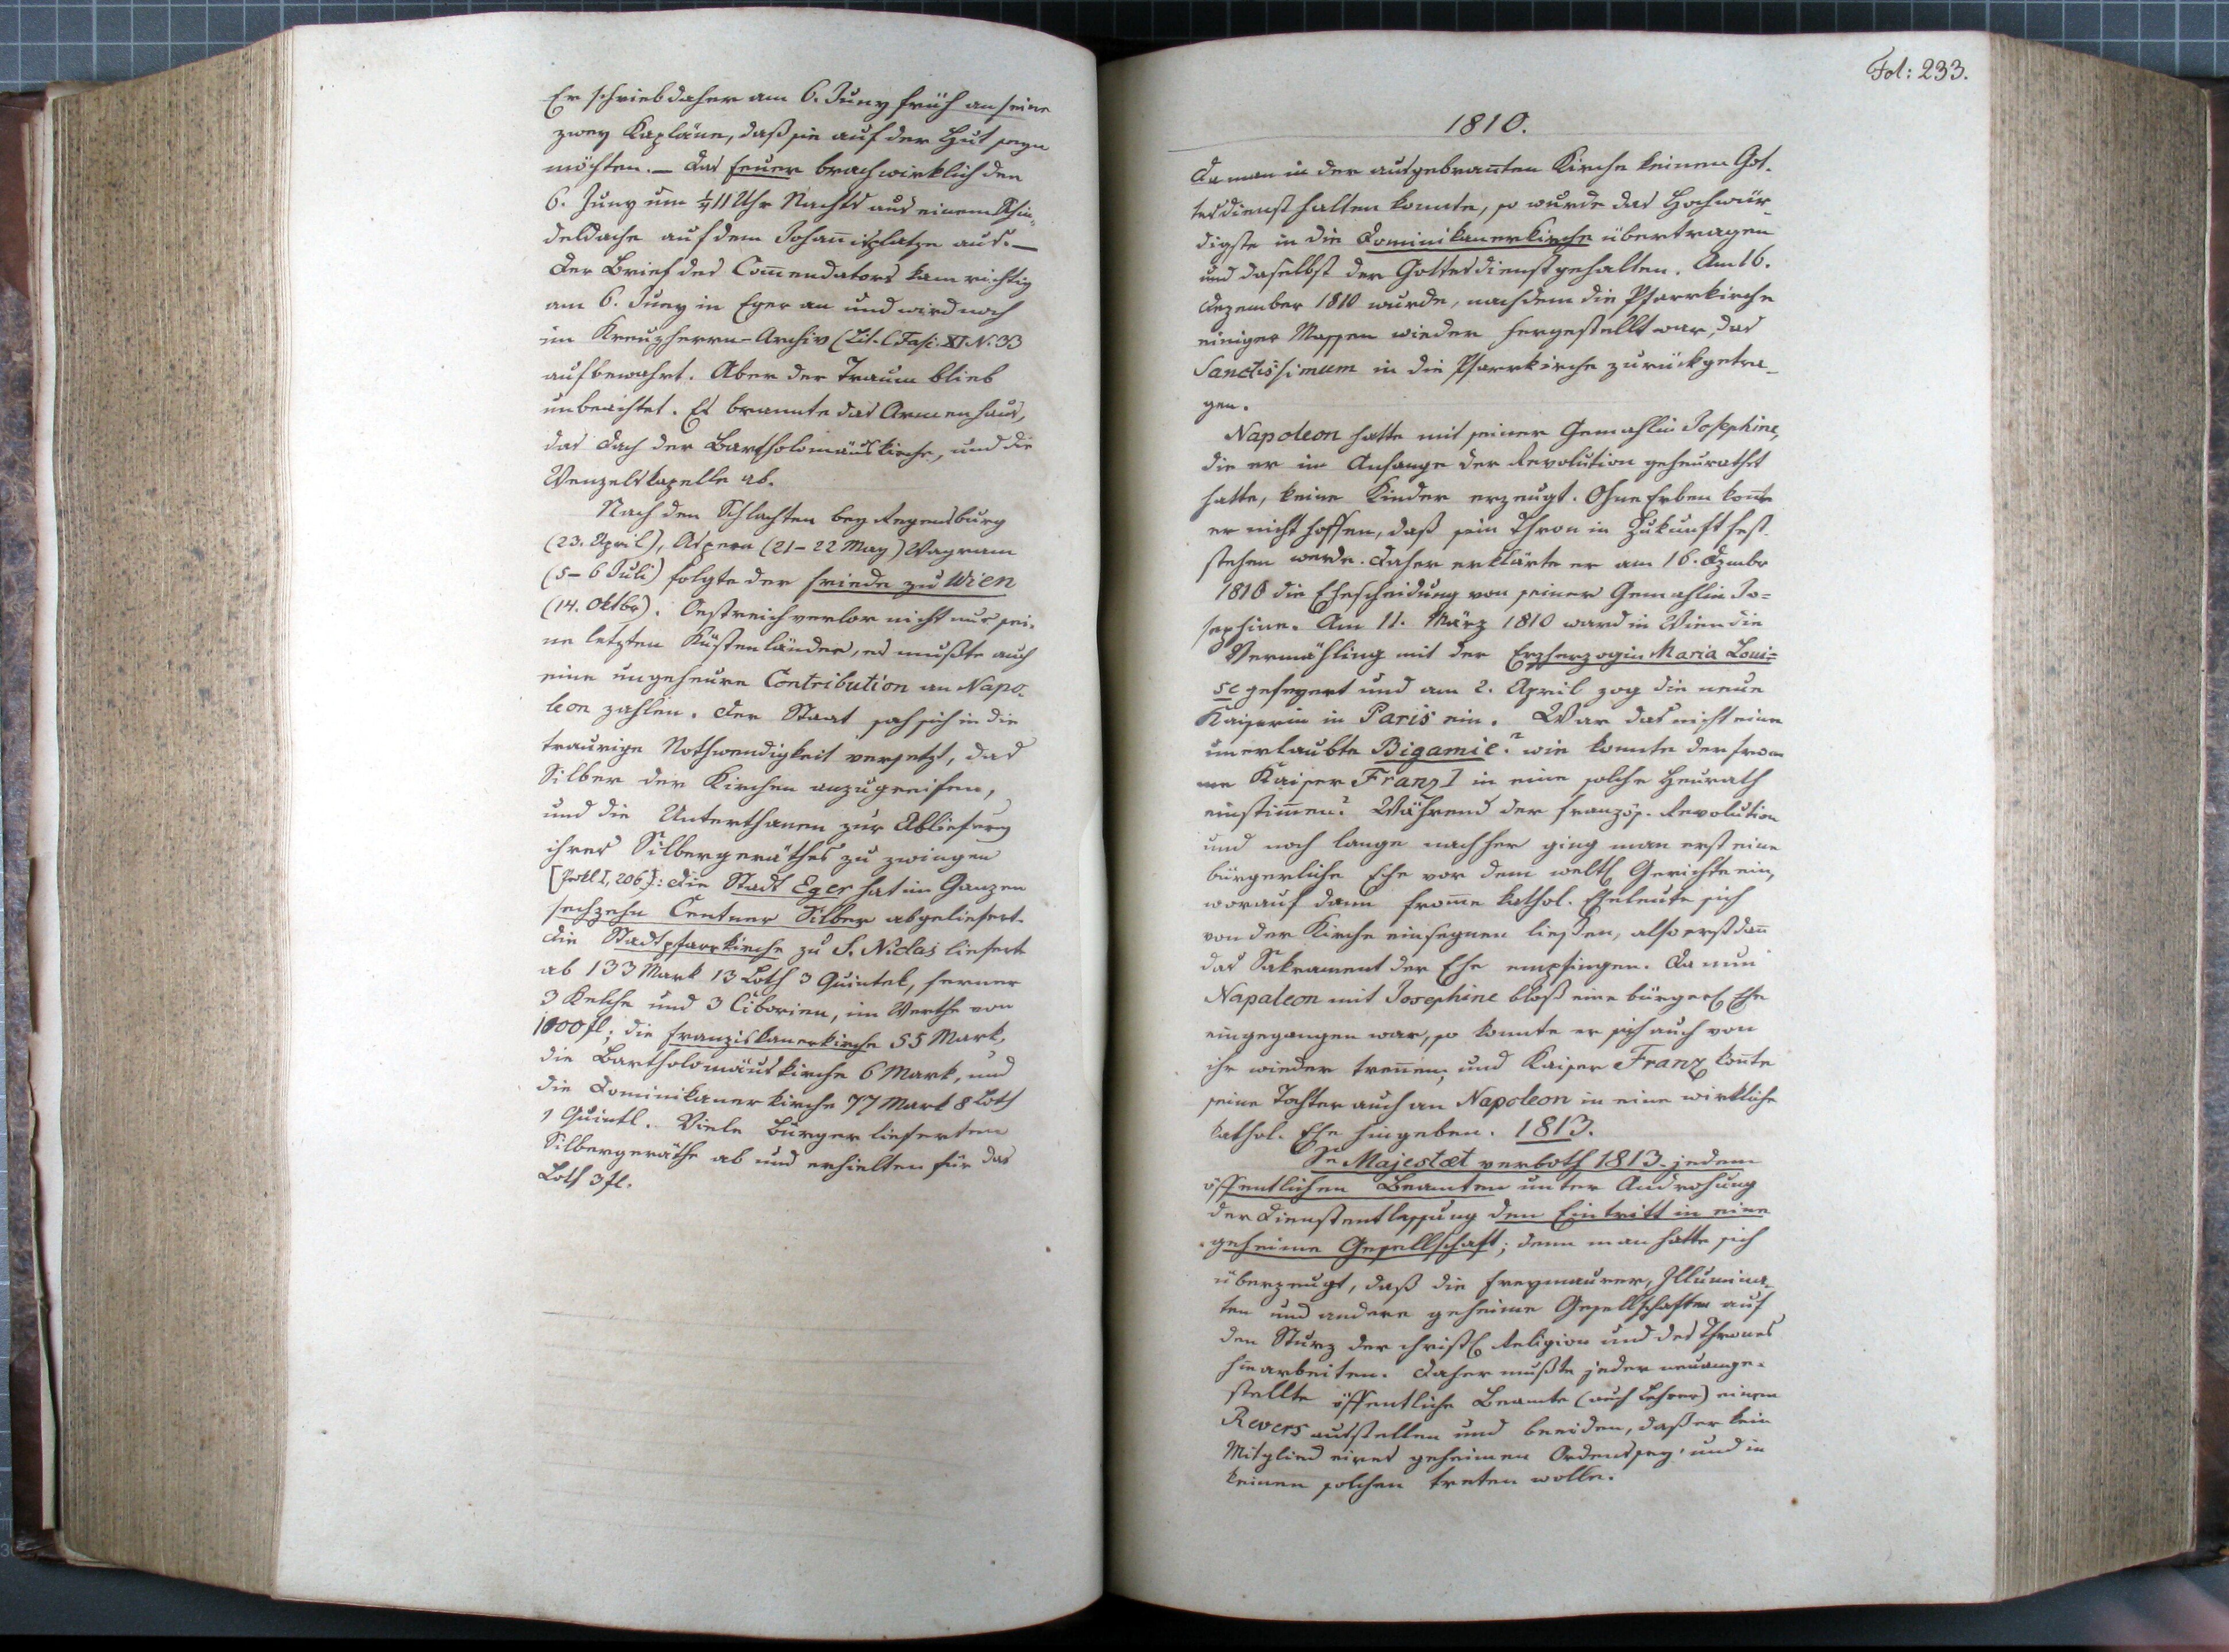 Er schrieb daher am 6. Juny früh an seine
zwey Kapläne, daß sie auf der Hut seyn
möchten. — Das Feuer brach wirklich den
6. Juny um ¼ 11 Uhr Nachts aus einem Schin-
deldache auf dem Johan̅isplatze aus. —
Der Brief des Com̅endators kam richtig
am 6. Juny in Eger an und wird noch
im Kreuzherrn-Archiv (Lit. C Fasc. XI N. 33
aufbewahrt. Aber der Traum blieb
unbeachtet. Es brannte das Armenhaus,
das Dach der Bartholomäuskirche, und die
Wenzelskapelle ab.
Nach den Schlachten bey Regensburg
(23. April), Aspern (21–22 May) Wagram
(5–6 Juli) folgte der Friede zu Wien
(14. Oktbr). Oestreich verlor nicht nur sei-
ne letzten Küstenländer, es mußte auch
eine ungeheure Contribution an Napo-
leon zahlen. Der Staat sah sich in die
traurige Nothwendigkeit versetzt, das
Silber der Kirchen anzugreifen,
und die Unterthanen zur Ablieferung
ihres Silbergeräthes zu zwingen
[Prökl I, 206]: Die Stadt Eger hat im Ganzen
sechzehn Centner Silber abgeliefert.
Die Stadtpfarrkirche zu S. Niclas liefert
ab 133 Mark 13 Loth 3 Quintel, ferner
3 Kelche und 3 Ciborien, im Werthe von
1000 fl; die Franziskanerkirche 55 Mark,
die Bartholomäuskirche 6 Mark, und
die Dominikanerkirche 77 Mark 8 Loth
1 Quintl. Viele Bürger lieferten
Silbergeräthe ab und erhielten für das
Loth 3 fl.
Fol: 233.
1810.
Da man in der ausgebran̅ten Kirche keinen Got-
tesdienst halten konnte, so wurde das Hochwür-
digste in die Dominikanerkirche übertragen
und daselbst der Gottesdienst gehalten. Am 16.
Dezember 1810 wurde, nachdem die Pfarrkirche
einiger Massen wieder hergestellt war, das
Sanctissimum in die Pfarrkirche zurückgetra-
gen.
Napoleon hatte mit seiner Gemahlin Josephine,
die er im Anfange der Revolution geheurathet
hatte, keine Kinder erzeugt. Ohne Erben kon̅te
er nicht hoffen, daß sein Thron in Zukunft fest
stehen werde. Daher erklärte er am 16. Dzmbr
1810 die Ehescheidung von seiner Gemahlin Jo=
sephine. Am 11. März 1810 ward in Wien die
Vermähling mit der Erzherzogin Maria Loui=
se gefeyert und am 2. April zog die neue
Kaiserin in Paris ein. War das nicht eine
unerlaubte Bigamie? wie konnte der from
me Kaiser Franz I in eine solche Heurath
einstim̅en? Während der französ. Revolution
und noch lange nachher ging man erst eine
bürgerliche Ehe vor dem weltl Gerichte ein,
worauf dann from̅e kathol. Eheleute sich
von der Kirche einsegnen ließen, also erst dan̅
das Sakrament der Ehe empfingen. Da nun
Napaleon mit Josephine bloß eine bürgerl Ehe
eingegangen war, so konnte er sich auch von
ihr wieder tren̅en, und Kaiser Franz kon̅te
seine Tochter auch an Napoleon in eine wirkliche
kathol. Ehe hingeben. 1813.
Se Majestæt verboth 1813. jedem
öffentlichen Beamten unter Androhung
der Dienstentlassung den Eintritt in eine
geheime Gesellschaft; denn man hatte sich
überzeugt, daß die Freymaurer, Illumina-
ten und andere geheime Gesellschaften auf
den Sturz der christl Religion und des Thrones
hinarbeiten. Daher mußte jeder neuange-
stellte öffentliche Beamte (auch Lehrer) einen
Revers ausstellen und beeiden, daß er kein
Mitglied eines geheimen Ordens sey, und in
keinen solchen treten wolle.